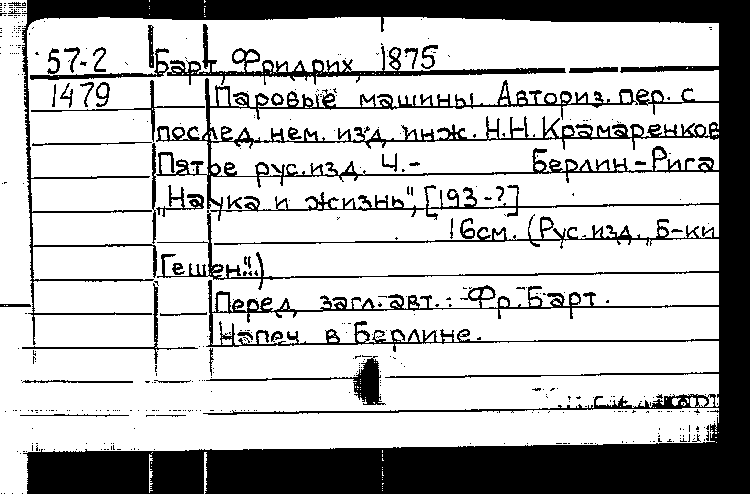 57-2 Барт, Фридрих, 1875
1479 Паровые машины. Авториз. пер. с
послед. нем. изд. инж. Н.Н. Крамаренков
Пятое рус. изд. Ч.- Берлин-Рига
„Наука и жизнь", [193-?]
16см. (Рус. изд. „Б-ки
Гешен").
Перед загл. авт.: Фр. Барт.
Напеч. в Берлине.